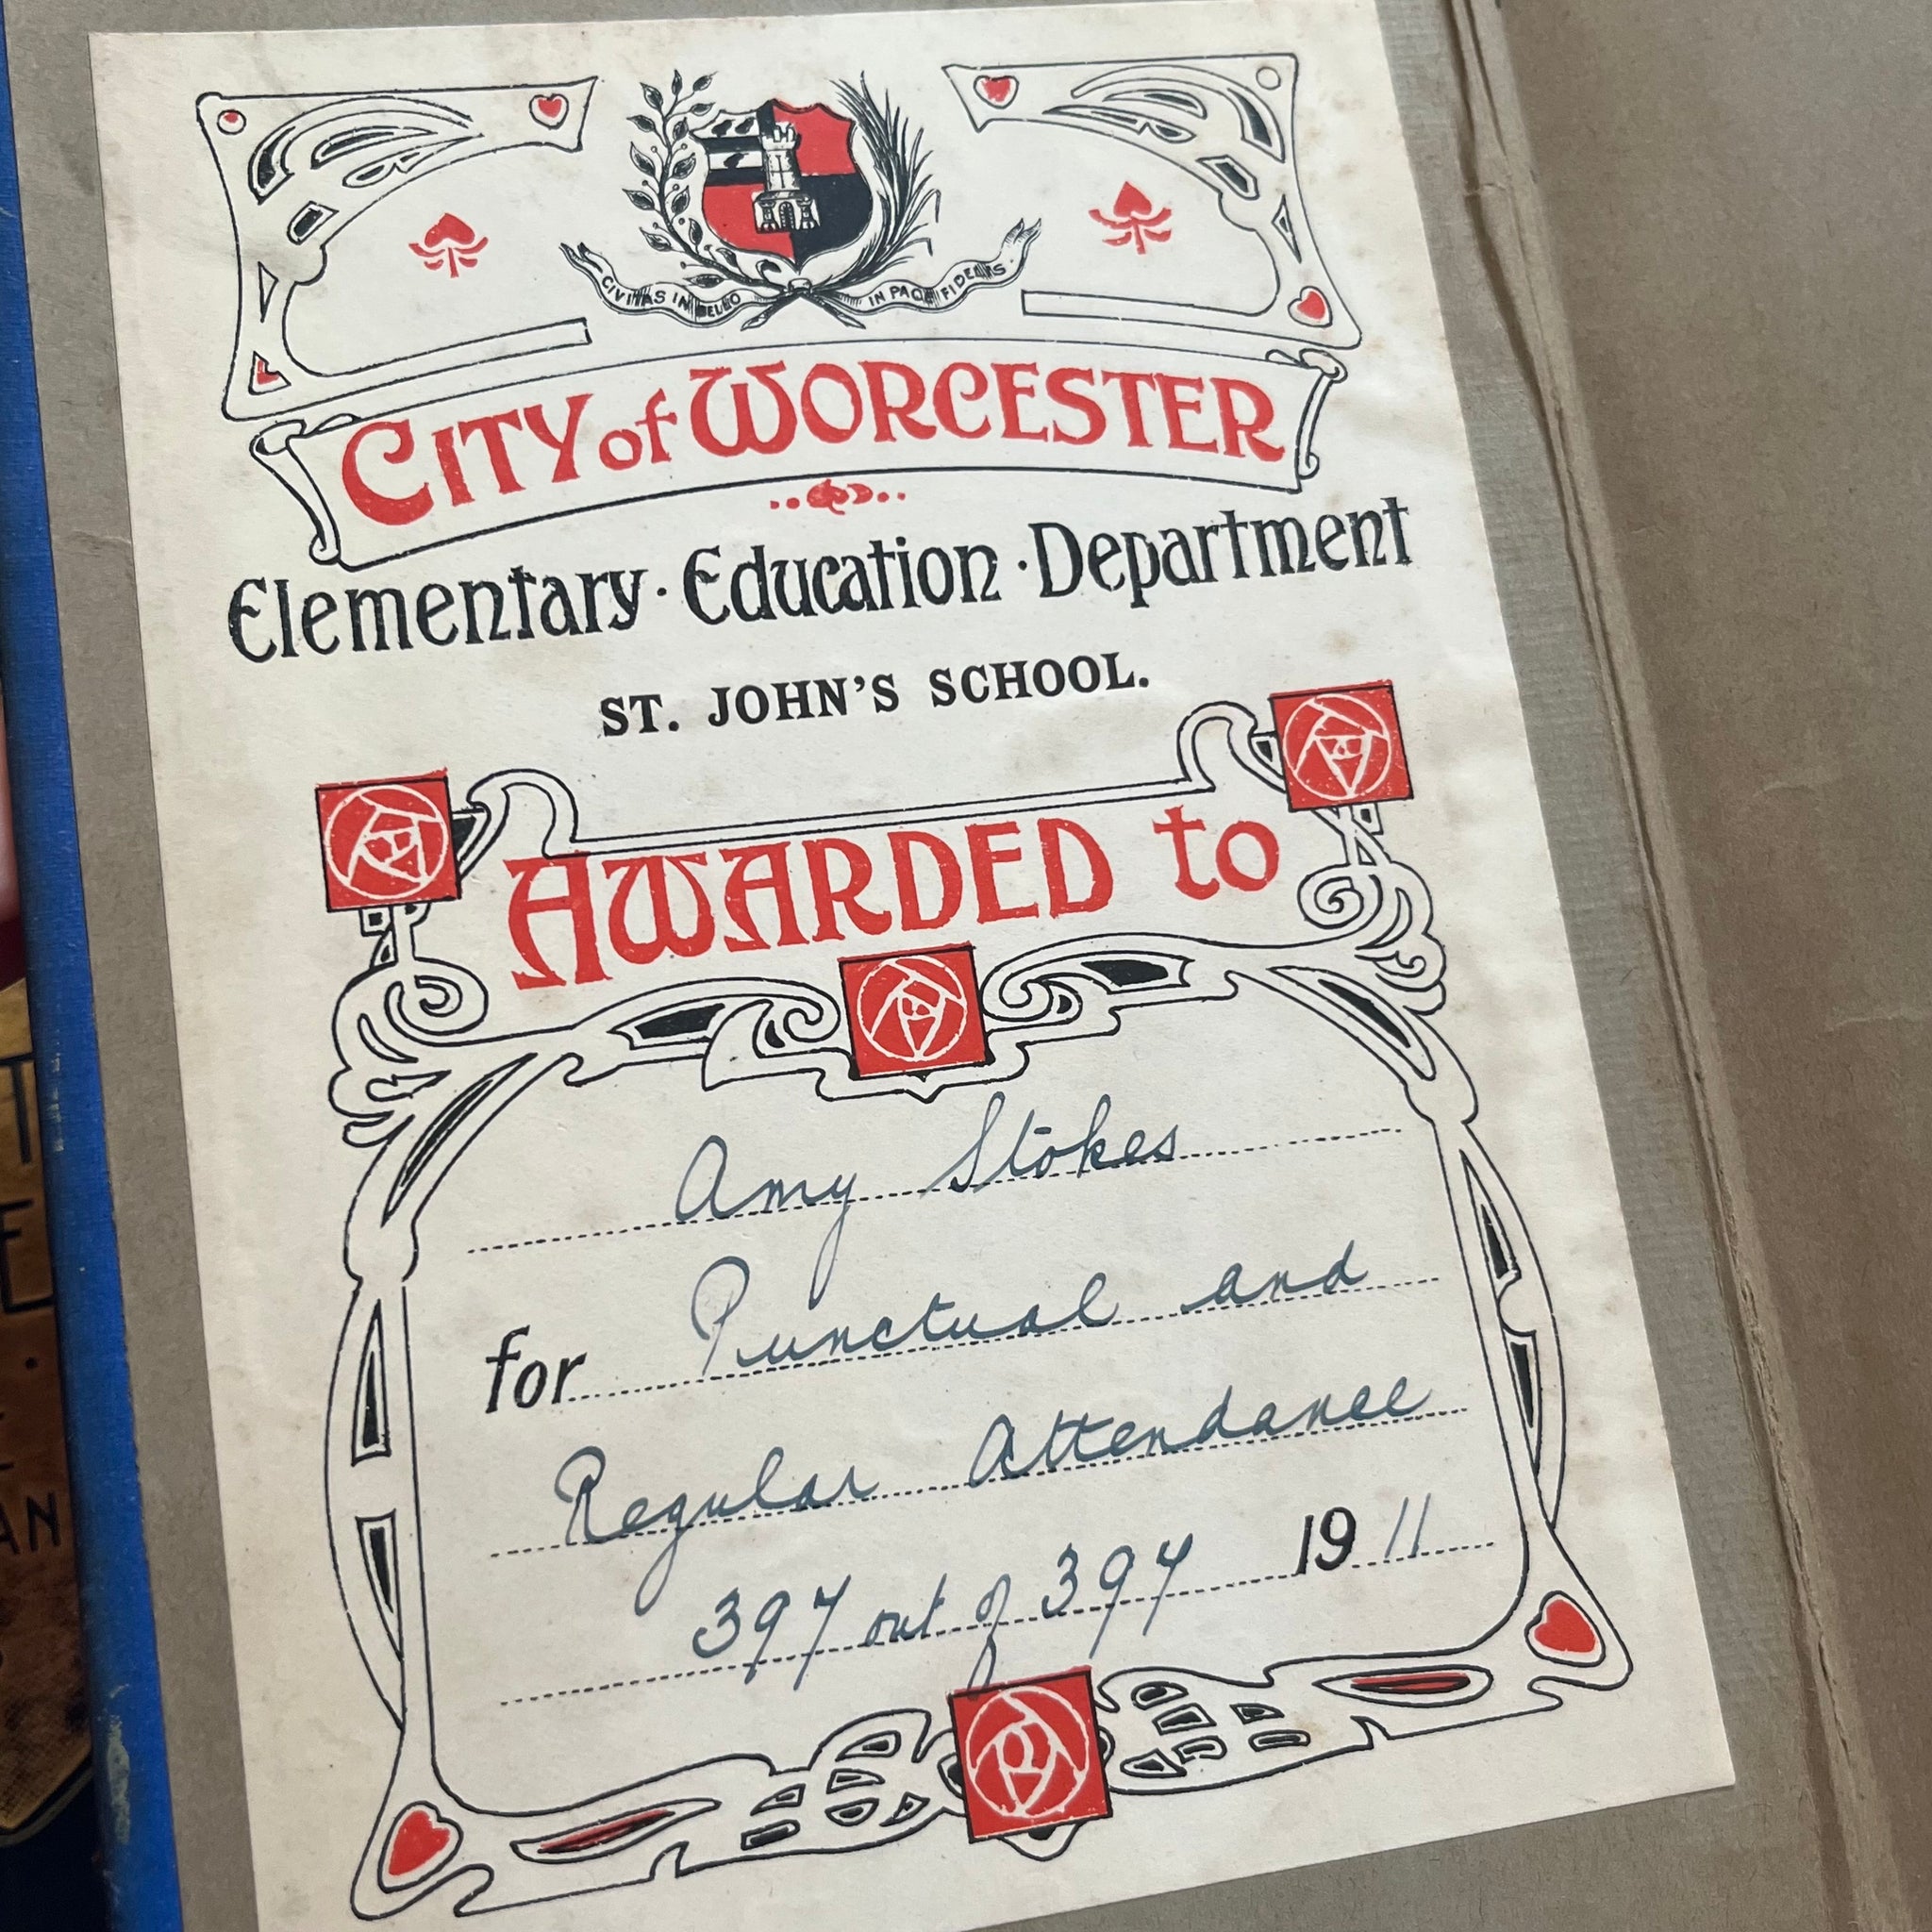 CIVITAS IN BELLO IN PACE FIDELIS
CITY of WORCESTER
Elementary · Education · Department
ST. JOHN'S SCHOOL.
AWARDED to
Amy Stokes
for Punctual and
Regular Attendance
397 out of 397 1911
T
E
AN